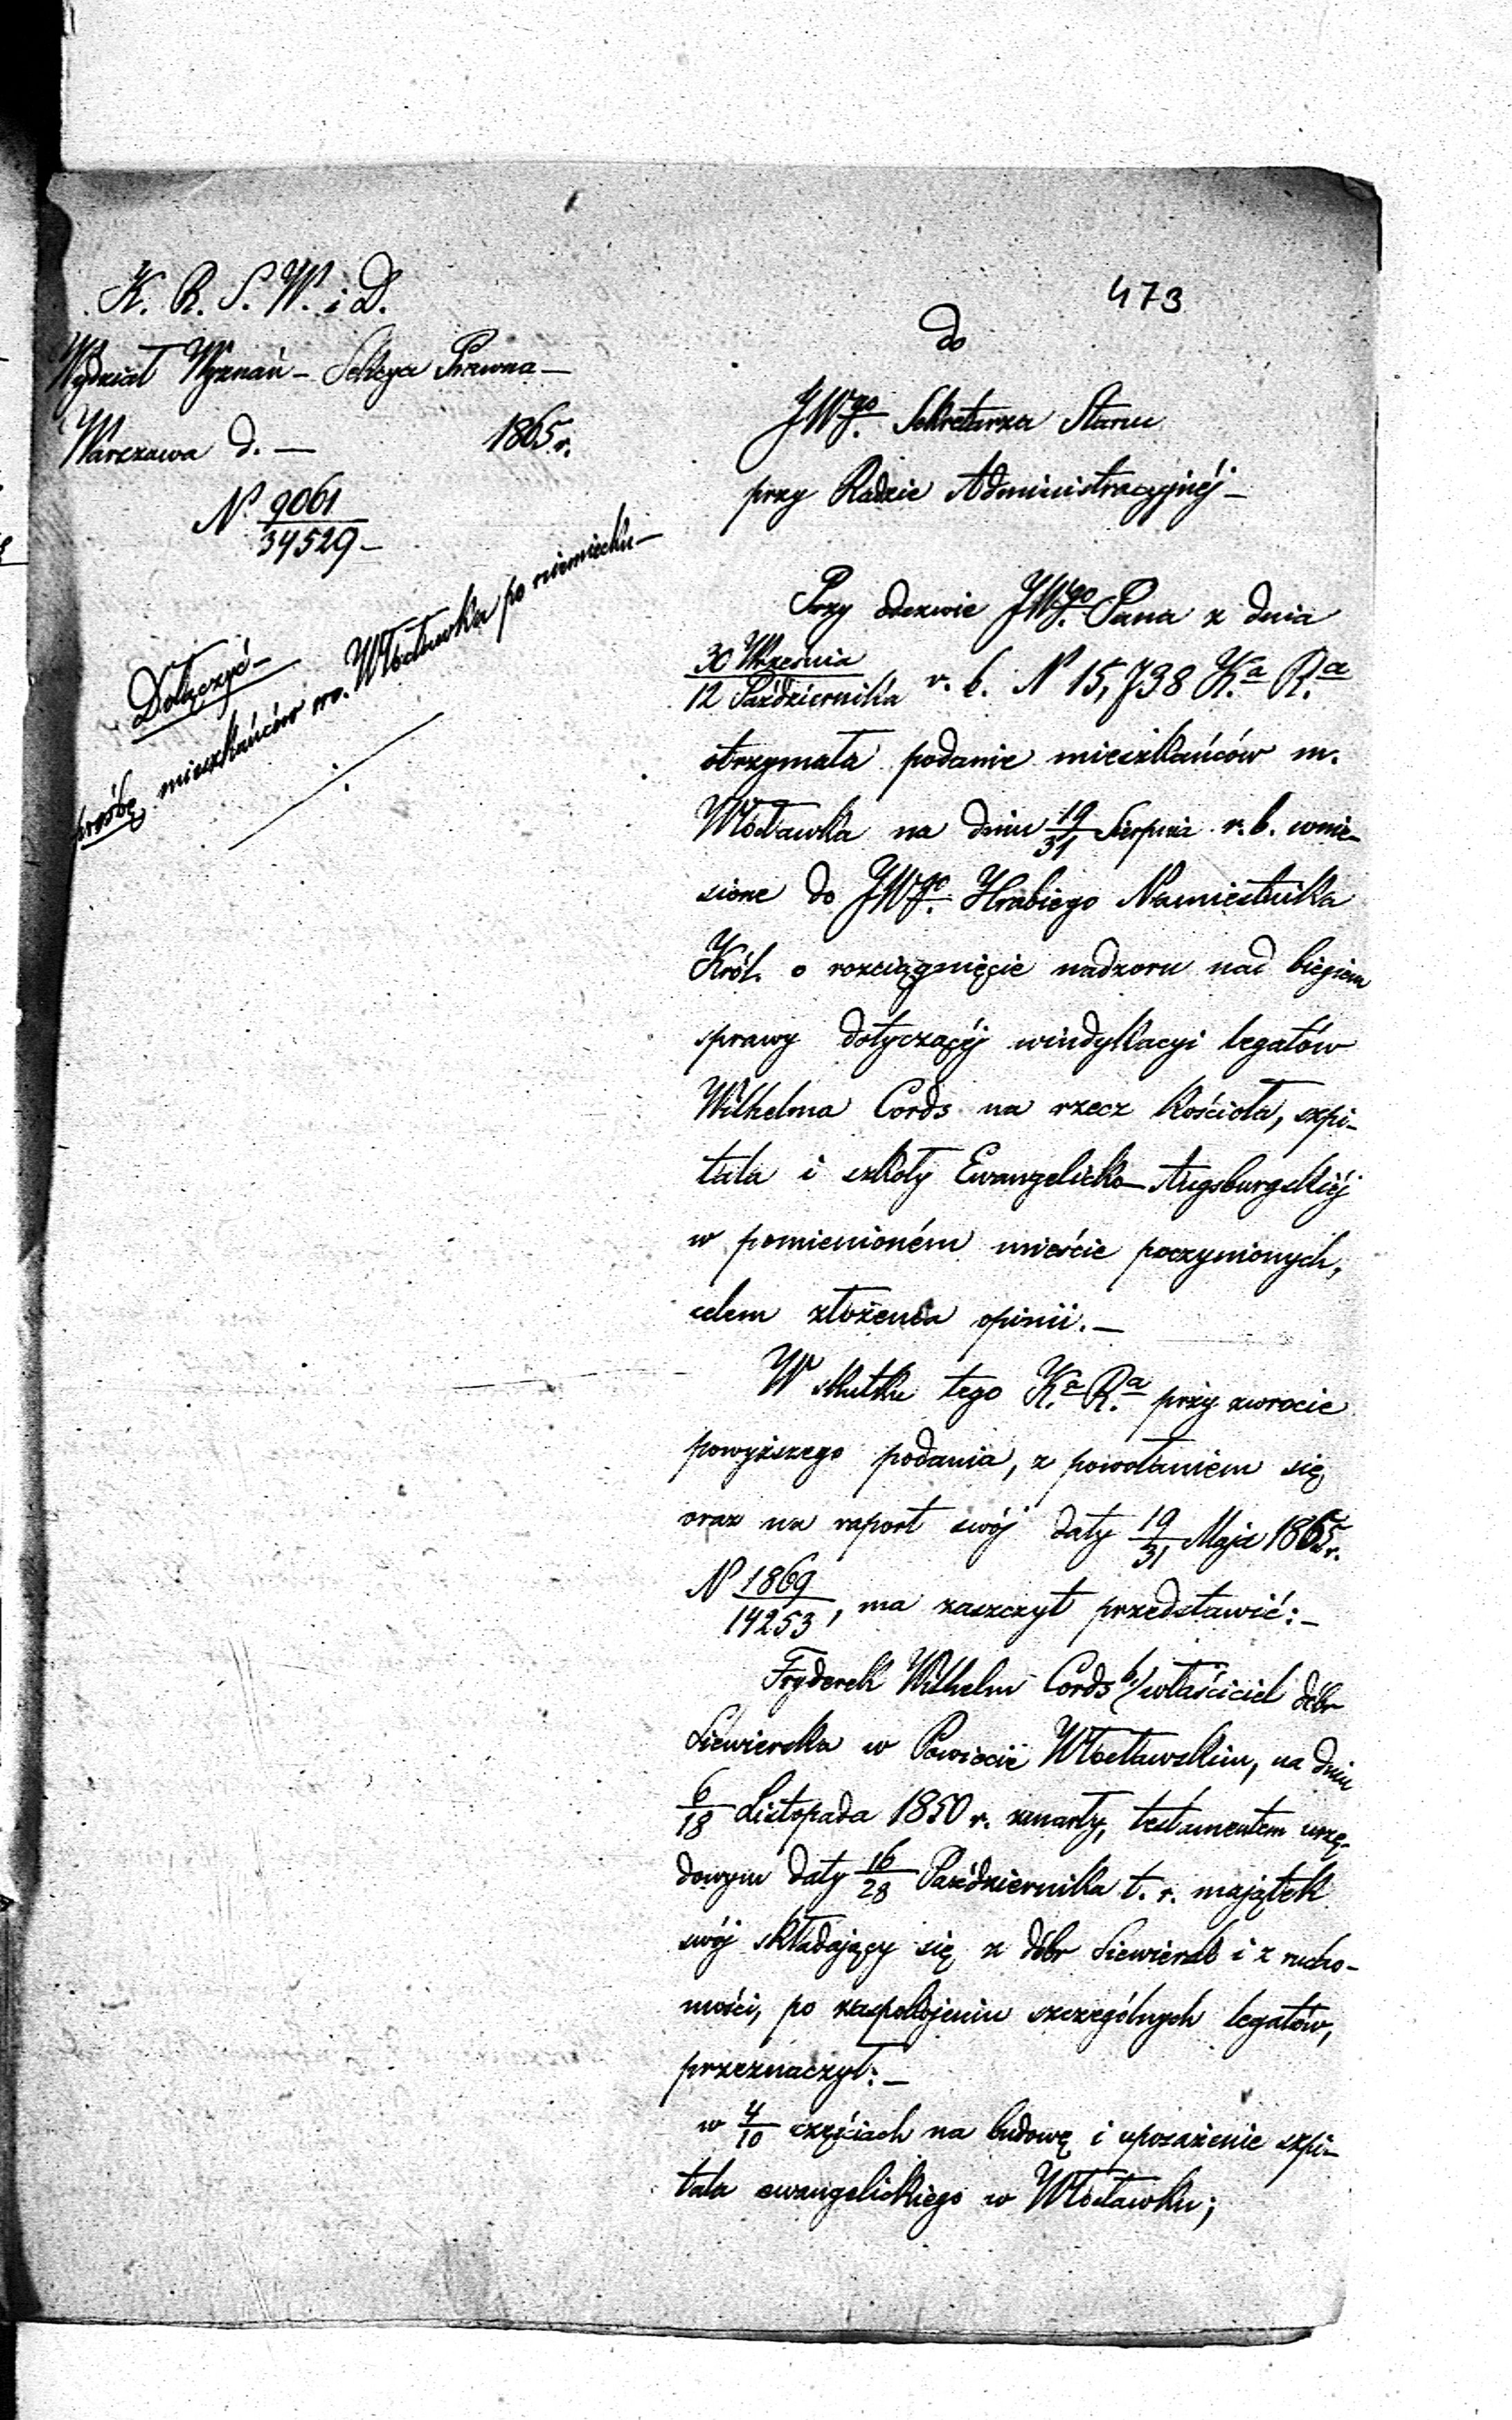 473
K. R. S. W. i D.
Wydział Wyznań – Sekcya Prawna –
Warszawa d. — 1865 r.
N. 9061/34529 –
Dołączyć –
prośbę mieszkańców m. Włocławka po niemiecku –
do
JWgo. Sekretarza Stanu
przy Radzie Administracyjnéj –
Przy odezwie JWgo. Pana z dnia
30 Września/12 Października r. b. N 15,738 K.a R.a
otrzymała podanie mieszkańców m.
Włocławka na dniu 19/31 Sierpnia r. b. wnie-
sione do JWgo. Hrabiego Namiestnika
Król. o rozciągnięcie nadzoru nad biegiem
sprawy dotyczącéj windykacyi legatów
Wilhelma Cords na rzecz Kościoła, szpi-
tala i szkoły Ewangelicko-Augsburgskiéj
w pomienioném mieście poczynionych,
celem złożenia opinii. –
W skutku tego K.a R.a przy zwrocie
powyższego podania, z powołaniem się
oraz na raport swój daty 19/31 Maja 1865 r.
N 1869/14253, ma zaszczyt przedstawić: –
Fryderek Wilhelm Cords b./ właściciel dóbr
Siewierska w Powiecie Włocławskim, na dniu
6/18 Listopada 1850 r. zmarły, testamentem urzę-
dowym daty 16/28 Października t. r. majątek
swój składający się z dóbr Siewiersk i z rucho-
mości, po zaspokojeniu szczególnych legatów,
przeznaczył: –
w 4/10 częściach na budowę i uposażenie szpi-
tala ewangelickiego w Włocławku;